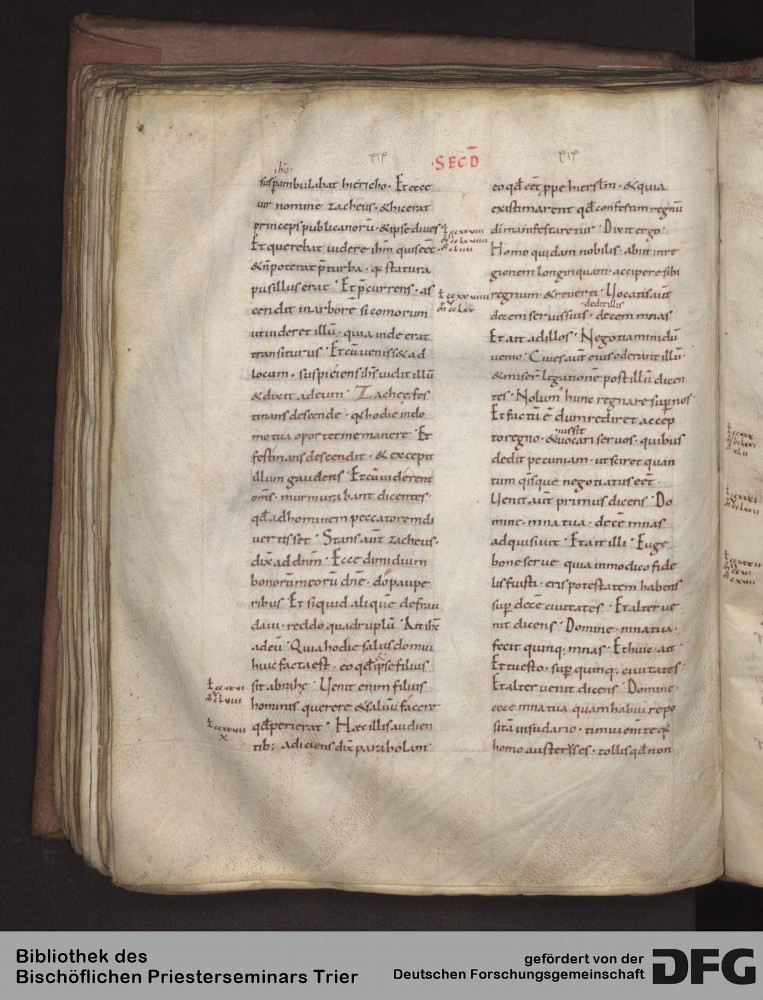 ·SECD̄
ih̄s·
sus p̄ambulabat hiericho · Et ecce
uir nomine zacheus · & hic erat
princeps publicanorū · & ipse diues
Et querebat uidere ih̄m quis eē͞t ·
& n̄ poterat p̄ turba · q̄ statura
pusillus erat · Et p̄currens · as
cendit in arborē sicomorum
ut uideret illū · quia inde erat
transiturus · Et cū uenisset ad
locum · suspiciens ih̄s uidit illū
& dixit ad eum · Zachee fes
tinans descende · q̄ hodie in do
mo tua oportet me manere · Et
festinans descendit · & excepit
illum gaudens · Et cū uiderent
om̄s · murmurabant dicentes ·
qđ ad hominem peccatorem di
uertisset · Stans aūt zacheus ·
dix̄ ad dn̄m · Ecce dimidium
bonorū meorū dn̄e · do paupe
ribus · Et si quid aliquē defrau
daui · reddo quadruplū · Ait ih̄s
ad eū · Quia hodie salus domui
huic facta est · eo qđ & ipse filius
sit abrahę · Uenit enim filius
hominis querere & saluū facere
qđ perierat · Hæc illis audien
tib: adiciens dix̄ parabolam ·
eo qđ eēt p̱pe hierslm̄ · & quia
existimarent qđ confestim regnū
di manifestaretur · Dixit ergo ·
Homo quidam nobilis · abiit in re
gionem longinquam · accipere sibi
regnum · & reuerti · Uocatis aūt
dedit illis
decem seruis suis · decem mnas
Et ait ad illos · Negotiamini dū
uenio · Ciues aūt eius oderant illū ·
& miser̄ legationē post illū dicen
tes · Nolum̄ hunc regnare sup̱ nos ·
Et factū ē dum rediret accep
iussit
to regno · & uocari seruos · quibus
dedit pecuniam · ut sciret quan
tum quisque negotiatus eēt ·
Uenit aūt primus dicens · Do
mine · mna tua · decē mnas
adquisiuit · Et ait illi · Euge
bone serue quia in modico fide
lis fuisti · eris potestatem habens
sup̱ decē ciuitates · Et alter ue
nit dicens · Domine · mna tua ·
fecit quinq; mnas · Et huic · ait
Et tu esto · sup̱ quinq; ciuitates ·
Et alter uenit dicens · Domine ·
ecce mna tua quam habui repo
sitā in sudario · timui enī te q̄
homo austerus es · tollis qđ non
Bibliothek des
Bischöflichen Priesterseminars Trier
gefördert von der
Deutschen Forschungsgemeinschaft
DFG